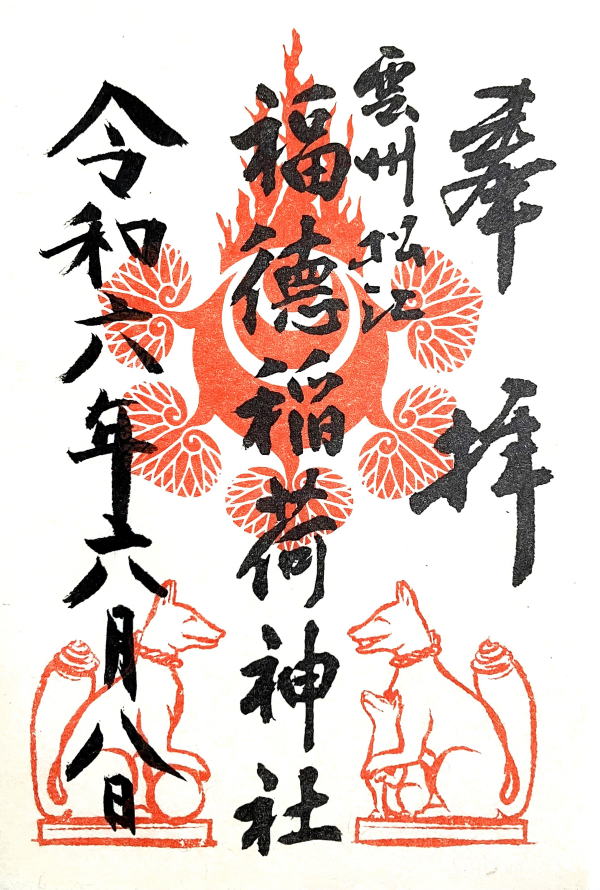 奉拝
雲州松江
福徳稲荷神社
令和六年六月八日